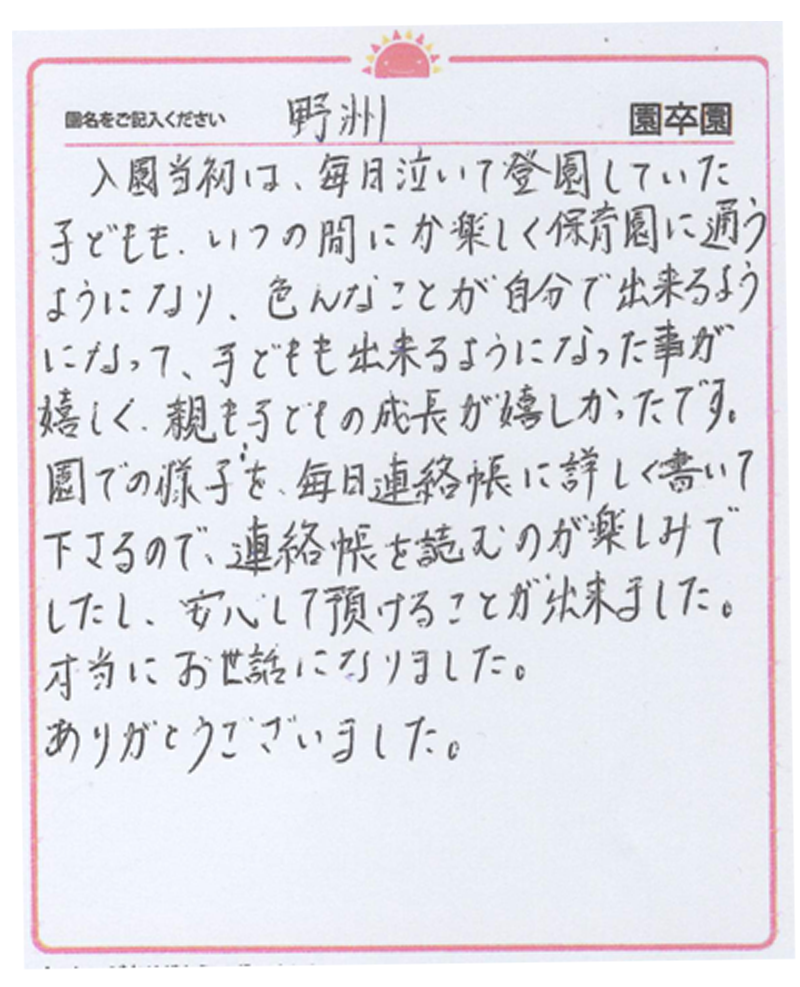 園名をご記入ください 野洲 園卒園
入園当初は、毎日泣いて登園していた
子どもも、いつの間にか楽しく保育園に通う
ようになり、色んなことが自分で出来るよう
になって、子どもも出来るようになった事が
嬉しく、親も子どもの成長が嬉しかったです。
園での様子を、毎日連絡帳に詳しく書いて
下さるので、連絡帳を読むのが楽しみで
したし、安心して預けることが出来ました。
本当にお世話になりました。
ありがとうございました。